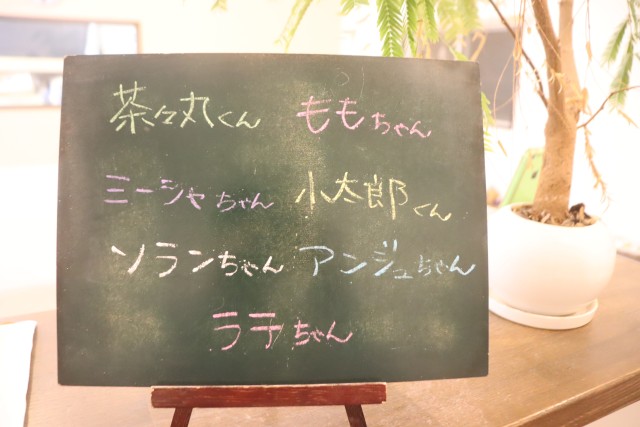 茶々丸くん ももちゃん
ミーシャちゃん 小太郎くん
ソランちゃん アンジュちゃん
ラテちゃん